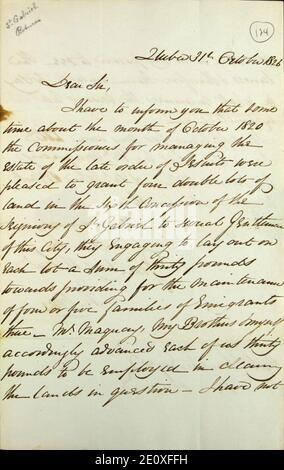 St Gabriel
134
Quebec 31st October 1826
Dear Sir,
I have to inform you that some
time about the month of October 1820
the Commissioners for managing the
Estate of the late order of Jesuits were
pleased to grant four double lots of
land in the Sixth Concession of the
Seigniory of St Gabriel to several Gentlemen
of this City, they engaging to lay out on
each lot a sum of thirty pounds
towards providing for the maintenance
of four or five Families of Emigrants
thereon - Mr Maquay, My Brother & myself
accordingly advanced each of us thirty
pounds to be employed in clearing
the lands in question - I have not
alamy
Image ID: 2E0XFFH
www.alamy.com